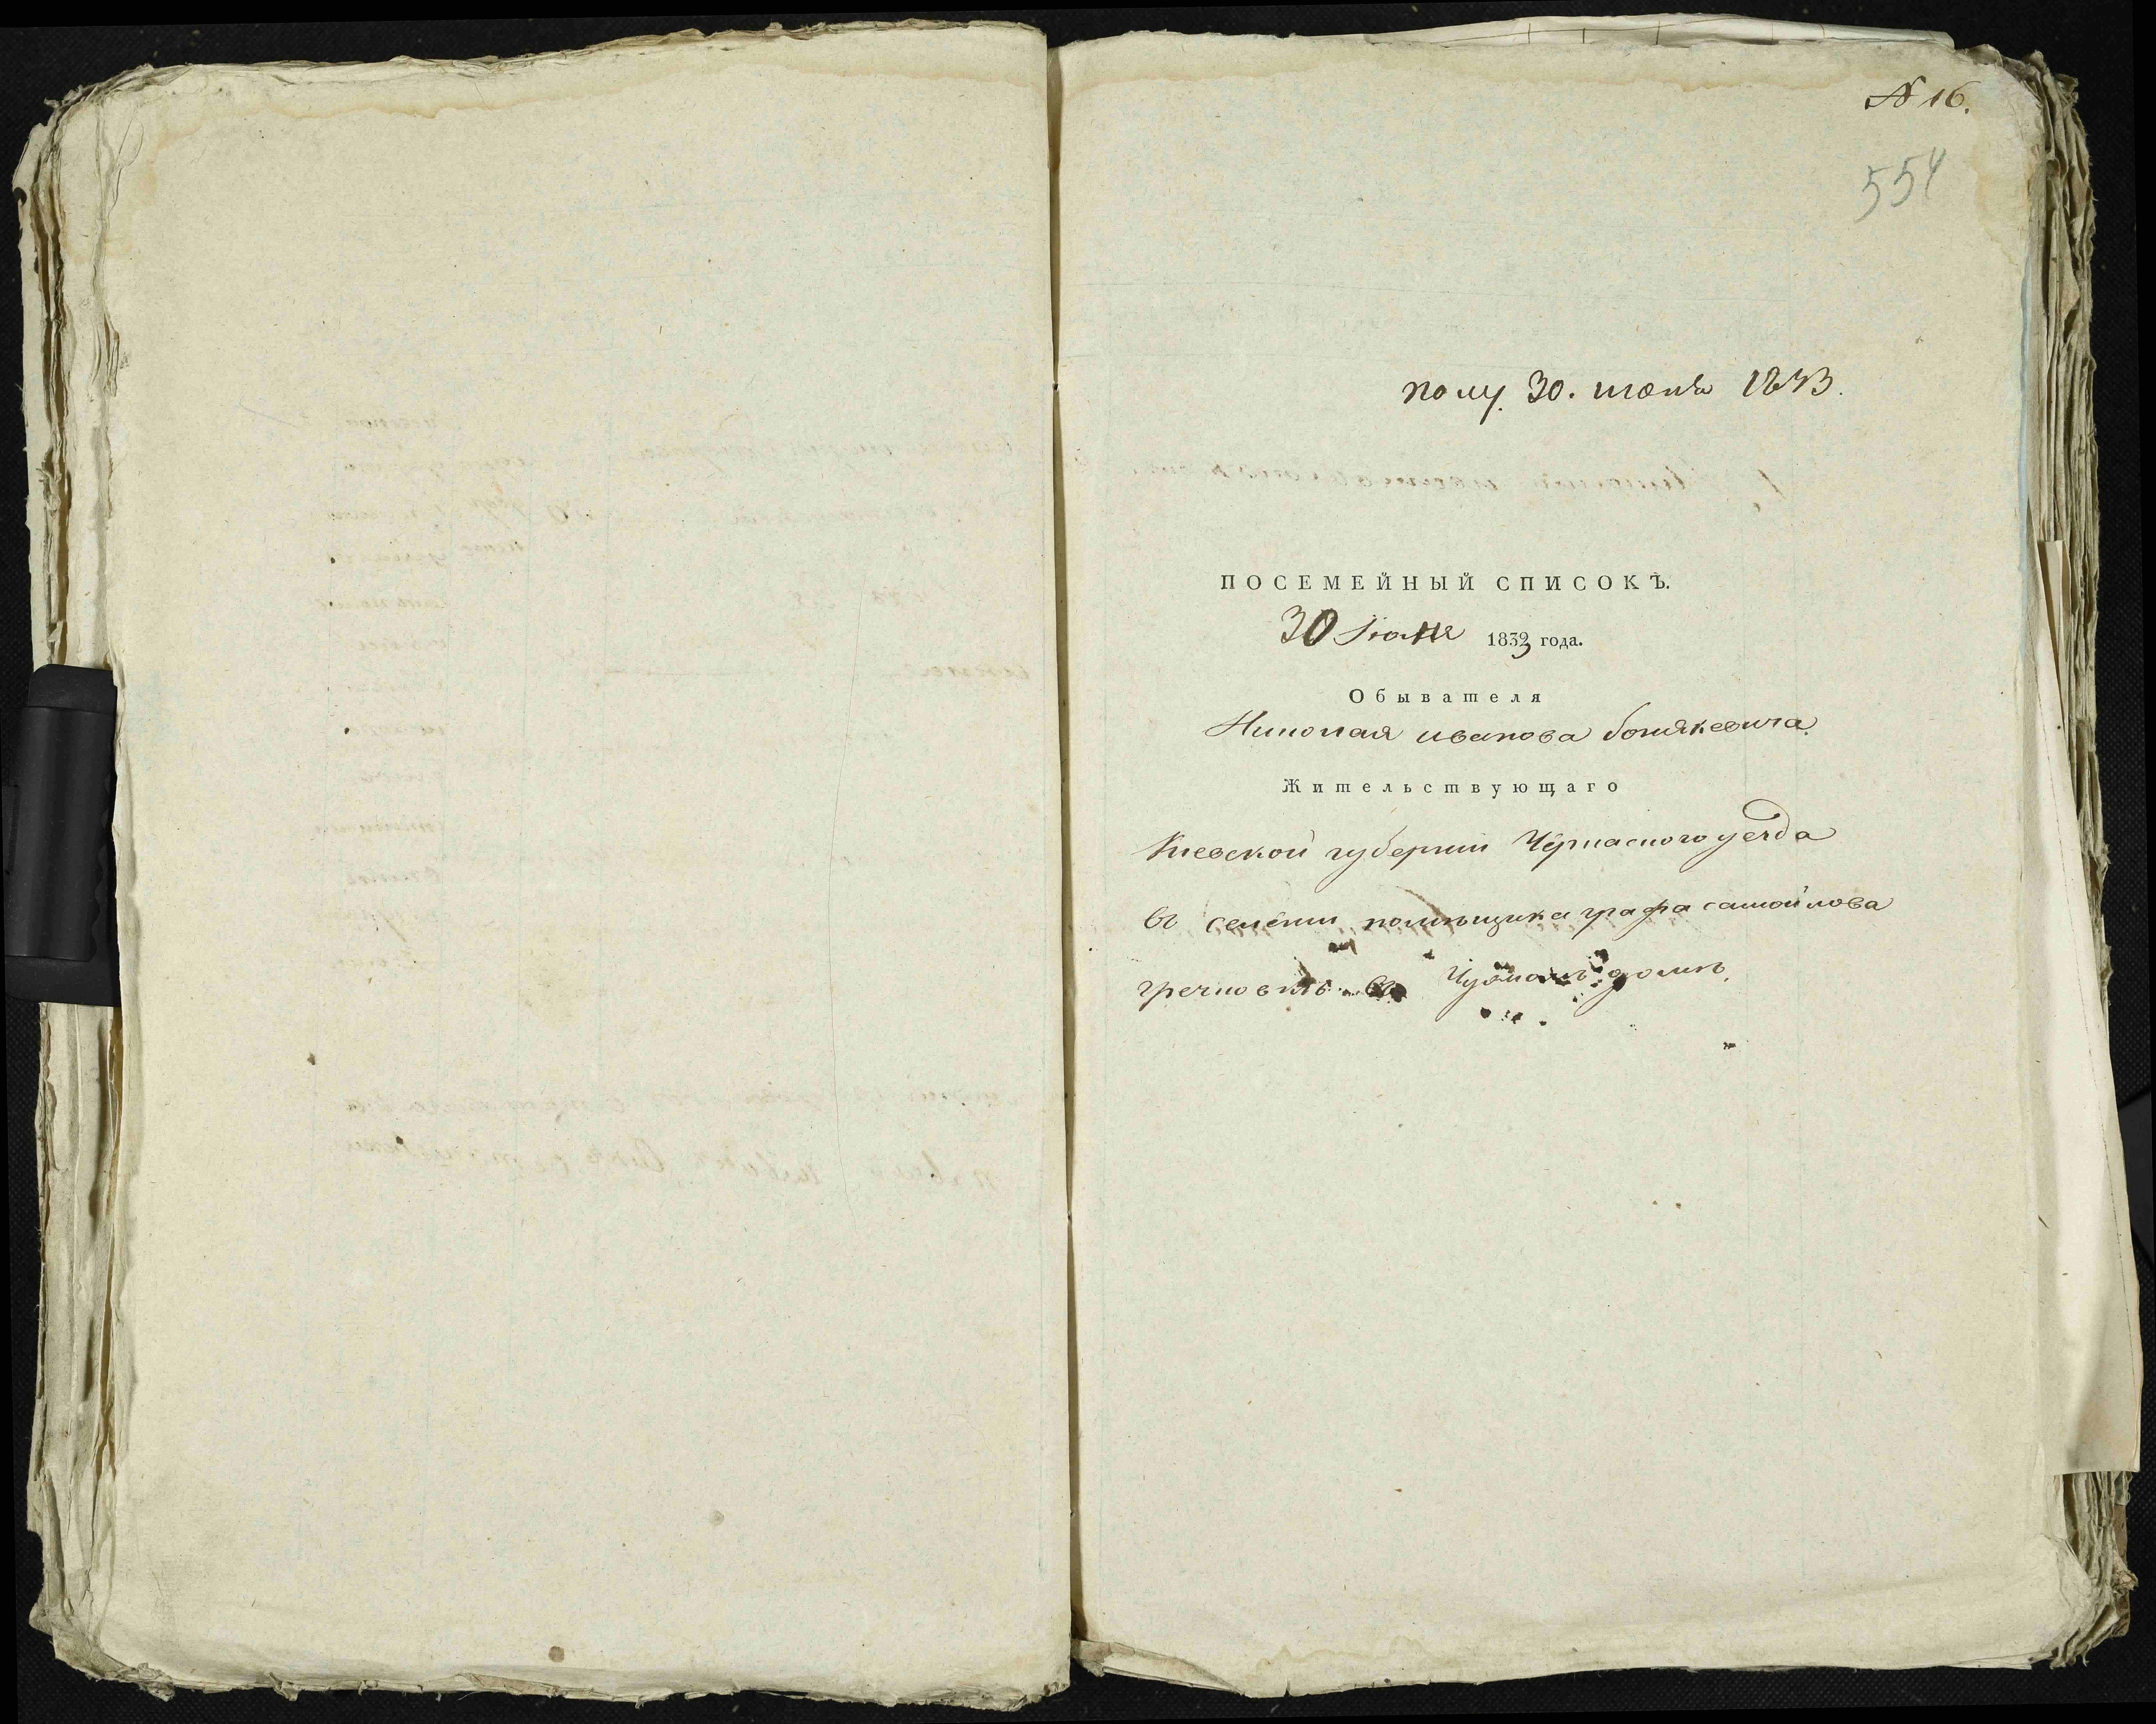 № 16.
554
полу. 30. июня 1833.
ПОСЕМЕЙНЫЙ СПИСОКЪ.
30 Іюня 1833 года.
Обывателя
Николая иванова
Жительствующаго
Киевской губернии Черкаского уезда
въ селении помѣщика графа самойлова
гречковкѣ въ Чужомъ домѣ.